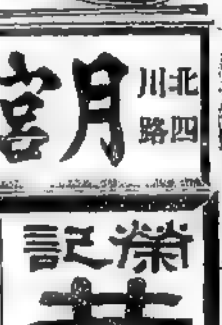 北四
川路
月宮
榮記